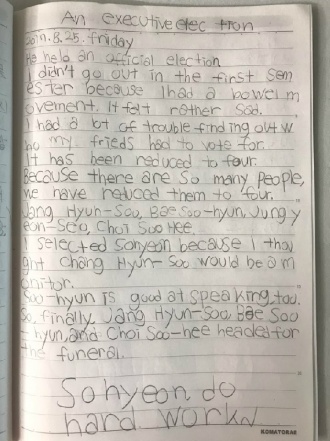 An executive elec tron
2017.8.25. friday
He held an official election
I didn't go out in the first sem
ester because I had a bowel m
ovement. It felt rather sad.
I had a lot of trouble finding out w
ho my frieds had to vote for.
It has been reduced to four.
Because there are so many people,
we have reduced them to four.
Jang Hyun-Soo, Bae Soo-hyun, Jung y
eon-Seo, Choi Soo Hee.
I selected Sohyeon because I thou
ght Chang Hyun-Soo would be a m
onitor.
Soo-hyun is good at speaking, too.
So, finally Jang Hyun-Soo, Bae Soo
-hyun, and Choi Soo-hee headed for
the funeral.
Sohyeon do
hard work
KOMATORAE